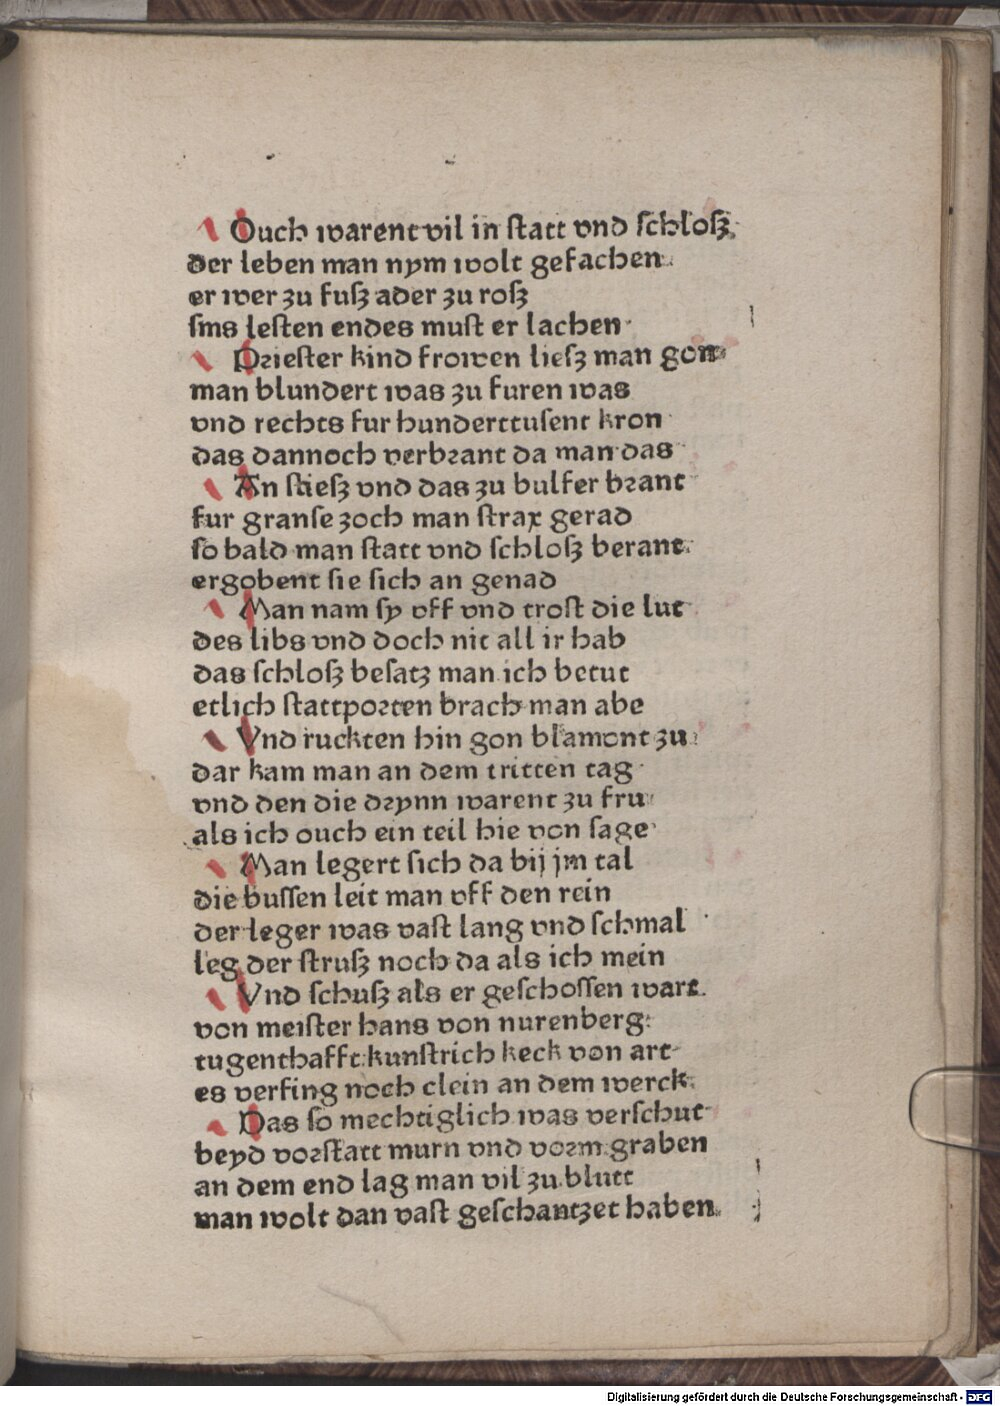 Ouch warent vil in ſtatt vnd ſchloſz
der leben man nym wolt gefachen
er wer zu fuſz ader zu roſz
ſins leſten endes muſt er lachen
Prieſter kind frowen lieſz man gon
man blundert was zu furen was
vnd rechts fur hunderttuſent kron
das dannoch verbrant da man das
An ſtieſz vnd das zu bulfer brant
fur granſe zoch man ſtrax gerad
ſo bald man ſtatt vnd ſchloſz berant
ergobent ſie ſich an genad
Man nam ſy vff vnd troſt die lut
des libs vnd doch nit all ir hab
das ſchloſz beſatz man ich betut
etlich ſtattporten brach man abe
Vnd ruckten hin gon blamont zu
dar kam man an dem tritten tag
vnd den die drynn warent zu fru
als ich ouch ein teil hie von ſage
Man legert ſich da bij jm tal
die buſſen leit man vff den rein
der leger was vaſt lang vnd ſchmal
leg der ſtruſz noch da als ich mein
Vnd ſchuſz als er geſchoſſen wart
von meiſter hans von nurenberg
tugenthafft kunſtrich keck von art
es verfing noch clein an dem werck
Das ſo mechtiglich was verſchut
beyd vorſtatt murn vnd vorm graben
an dem end lag man vil zu blutt
man wolt dan vaſt geſchantzet haben
Digitalisierung gefördert durch die Deutsche Forschungsgemeinschaft - DFG